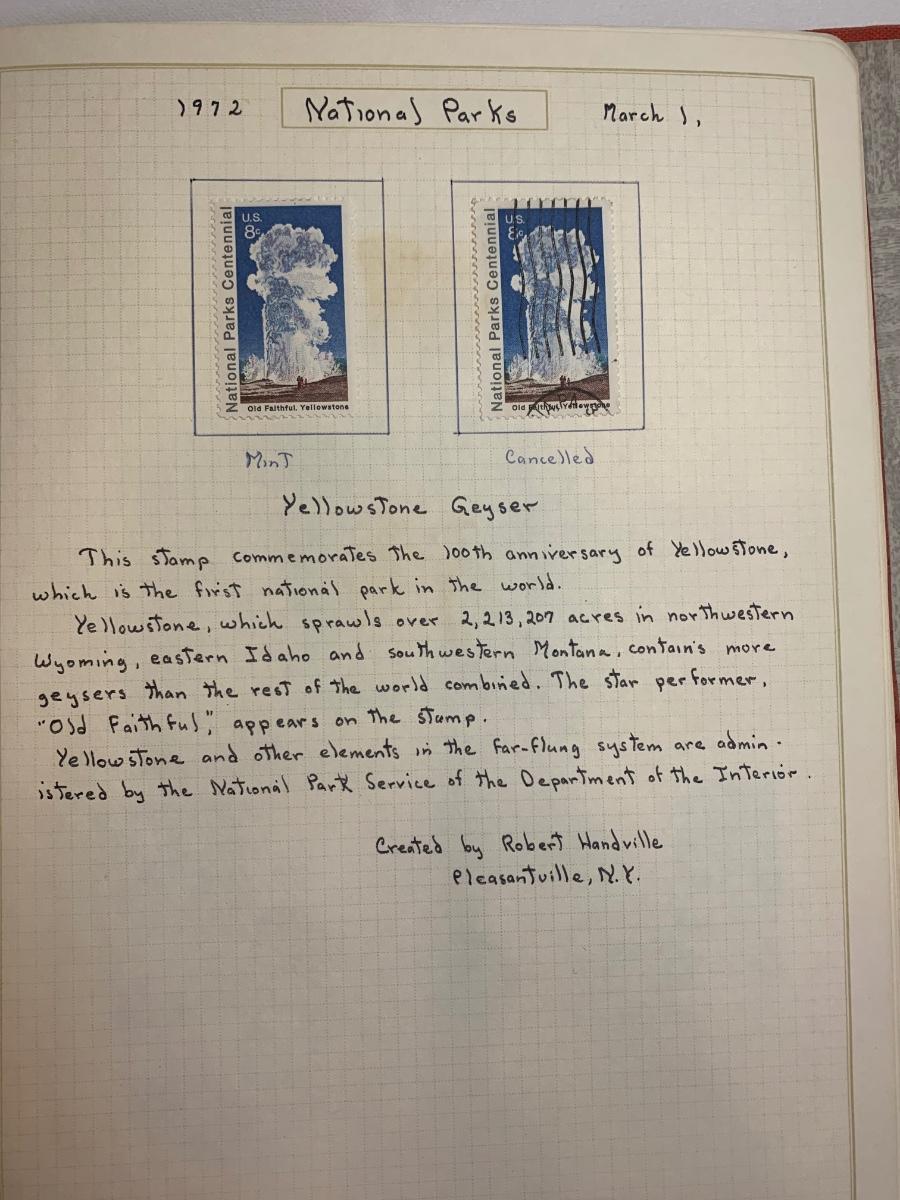 1972 National Parks March 1,
National Parks Centennial
U.S.
8c
Old Faithful, Yellowstone
National Parks Centennial
U.S.
8c
Old Faithful, Yellowstone
Mint
Cancelled
Yellowstone Geyser
This stamp commemorates the 100th anniversary of Yellowstone,
which is the first national park in the world.
Yellowstone, which sprawls over 2,213,207 acres in northwestern
Wyoming, eastern Idaho and southwestern Montana, contain's more
geysers than the rest of the world combined. The star performer,
"Old Faithful", appears on the stamp.
Yellowstone and other elements in the far-flung system are admin-
istered by the National Park Service of the Department of the Interior.
Created by Robert Handville
Pleasantville, N.Y.